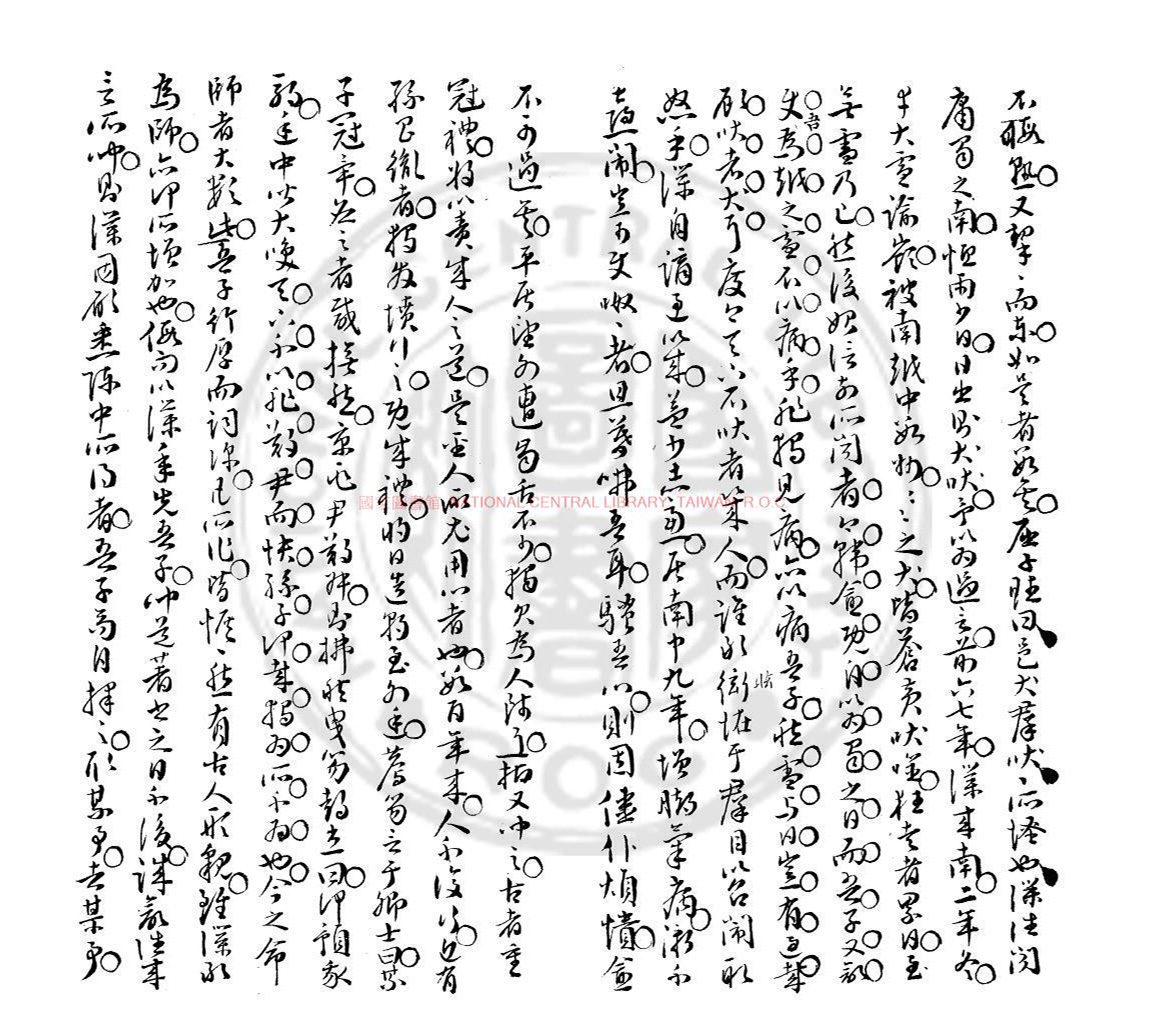 不暇熟又挈〻而東如是者數矣屈子賦曰邑犬群吠〻所怪也僕往聞
庸蜀之南恒雨少日日出則犬吠予以為過言前六七年僕來南二年冬
幸大雪踰嶺被南越中數州〻〻之犬皆蒼黃吠噬狂走者累日至
無雪乃已然後始信前所聞者今韓愈既自以為蜀之日而吾子又欲
使吾為越之雪不以病乎非獨見病亦以病吾子然雪與日豈有過哉
顧吠者犬耳度今天下不吠者幾人而誰敢衒怪于群目以召鬧取
怒乎僕自謫過以來益少志慮居南中九年增腳氣病漸不
喜鬧豈可使呶〻者早暮咈吾耳騷吾心則固僵仆煩憒愈
不可過矣平居望外遭齒舌不少獨欠為人師耳抑又聞之古者重
冠禮將以責成人之道是聖人所尤用心者也數百年來人不復行近有
孫昌胤者獨發憤行之既成禮明日造朝至外廷薦笏言于卿士曰某
子冠畢應之者咸憮然京兆尹鄭叔則拂然曳笏却立曰何預我
耶廷中皆大笑天下不以非鄭尹而快孫子何哉獨為所不為也今之命
師者大類此吾子行厚而詞深凡所作皆恢〻然有古人形貌雖僕敢
為師亦何所增加也假而以僕年先吾子聞道著書之日不後誠欲往來
言所聞則僕固願悉陳中所得者吾子苟自擇之取某事去某事
國立圖書館 NATIONAL CENTRAL LIBRARY, TAIWAN R.O.C